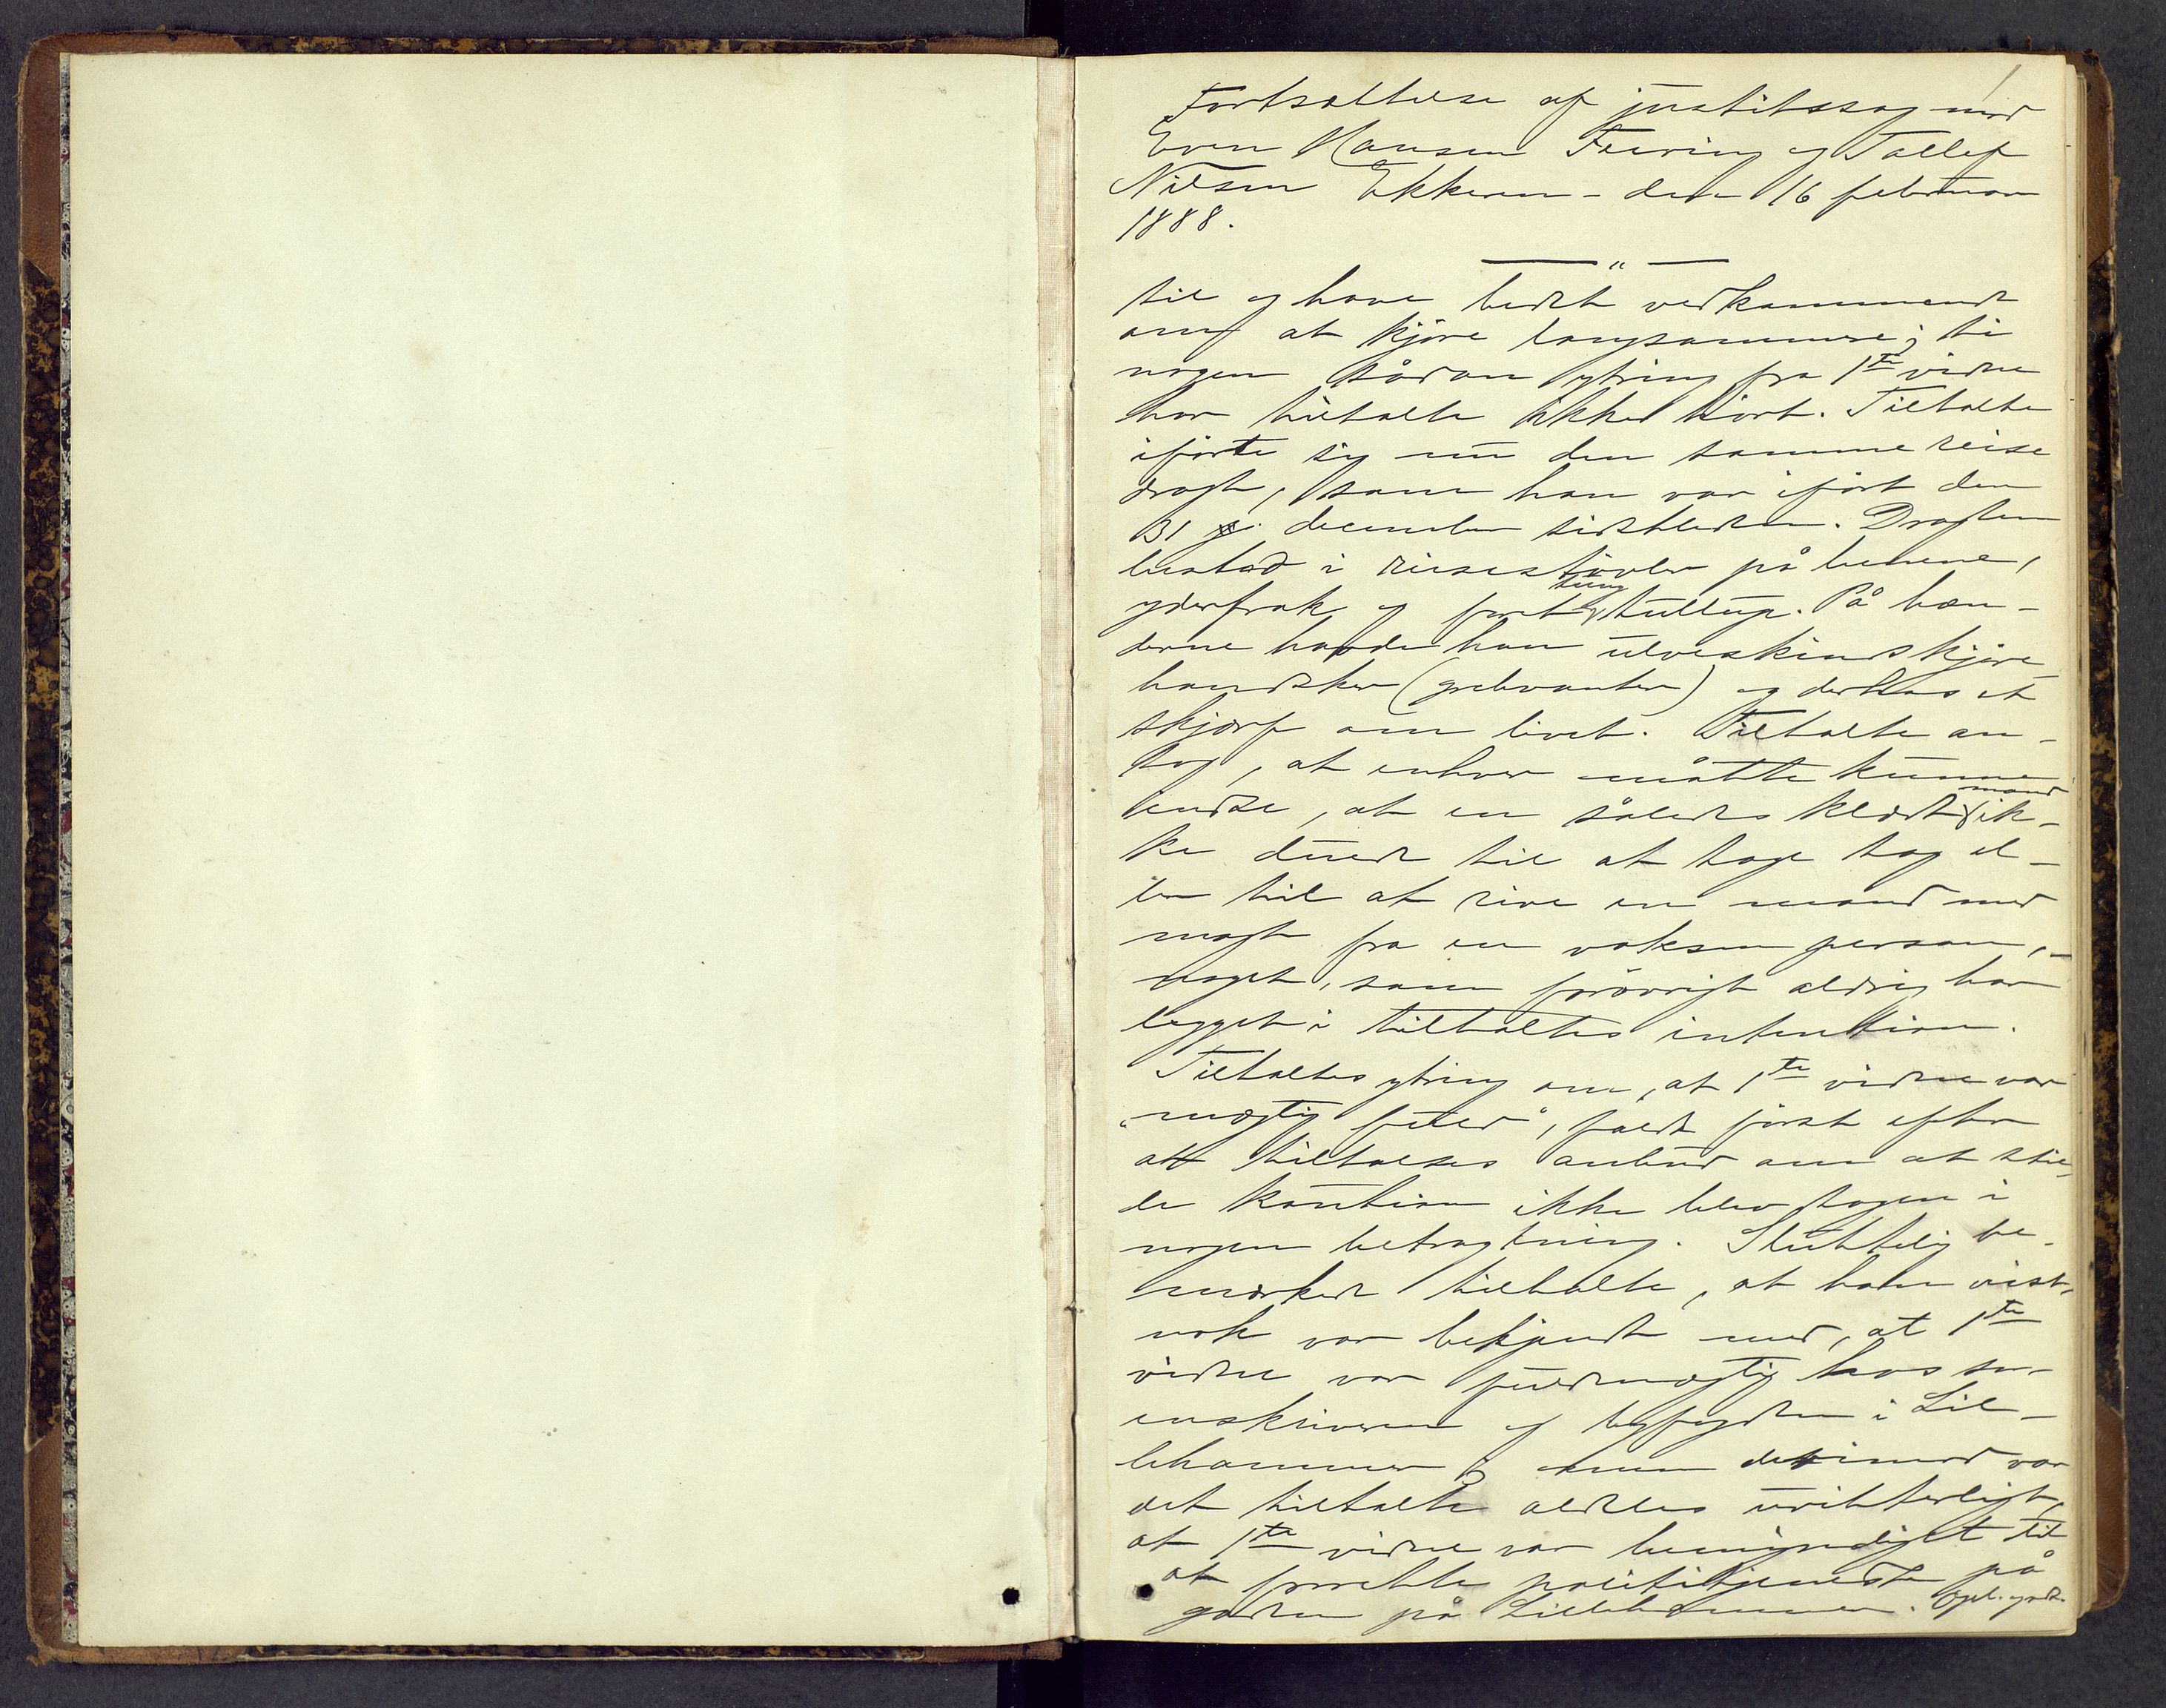 1
Fortsættelse af justitssag mod
Even Hansen Feiring og Tollef
Nilsen Ekkern - den 16 februar
1888.
— " —
til og have bedt vedkommende
om at kjøre langsommere; ti
nogen sådan ytring fra 1te vidne
har tiltalte ikke hört. Tiltalte
iförte sig nu den samme reise
dragt, som han var ifört den
31 december sidstleden. Dragten
bestod i reisestövler på benene,
yderfrak og foret tung tullup. På hæn-
derne havde han ulveskindskjøre
handsker (grebvanter) og derhos et
skjærf om livet. Tiltalte an-
tog, at enhver måtte kunne
indse, at en således klædt mand ik-
ke duede til at tage tag el-
ler til at rive en mand med
magt fra en voksen person, -
noget, som forövrigt aldrig har
ligget i tiltaltes intention.
Tiltaltes ytring om, at 1te vidne var
"mægtig fuld", faldt først efter
at tiltaltes anbud om at stil-
le kaution ikke blev tagen i
nogen betragtning. Sluttelig be-
mærkede tiltalte, at han vist-
nok var bekjendt med, at 1te
vidne var fuldmægtig hos so-
renskriveren og byfogden i Lil-
lehammer; men derimod var
det tiltalte aldeles uvitterligt,
at 1te vidne var bemyndiget til
at forrette polititjeneste på
gaden på Lillehammer. Opl. godk.